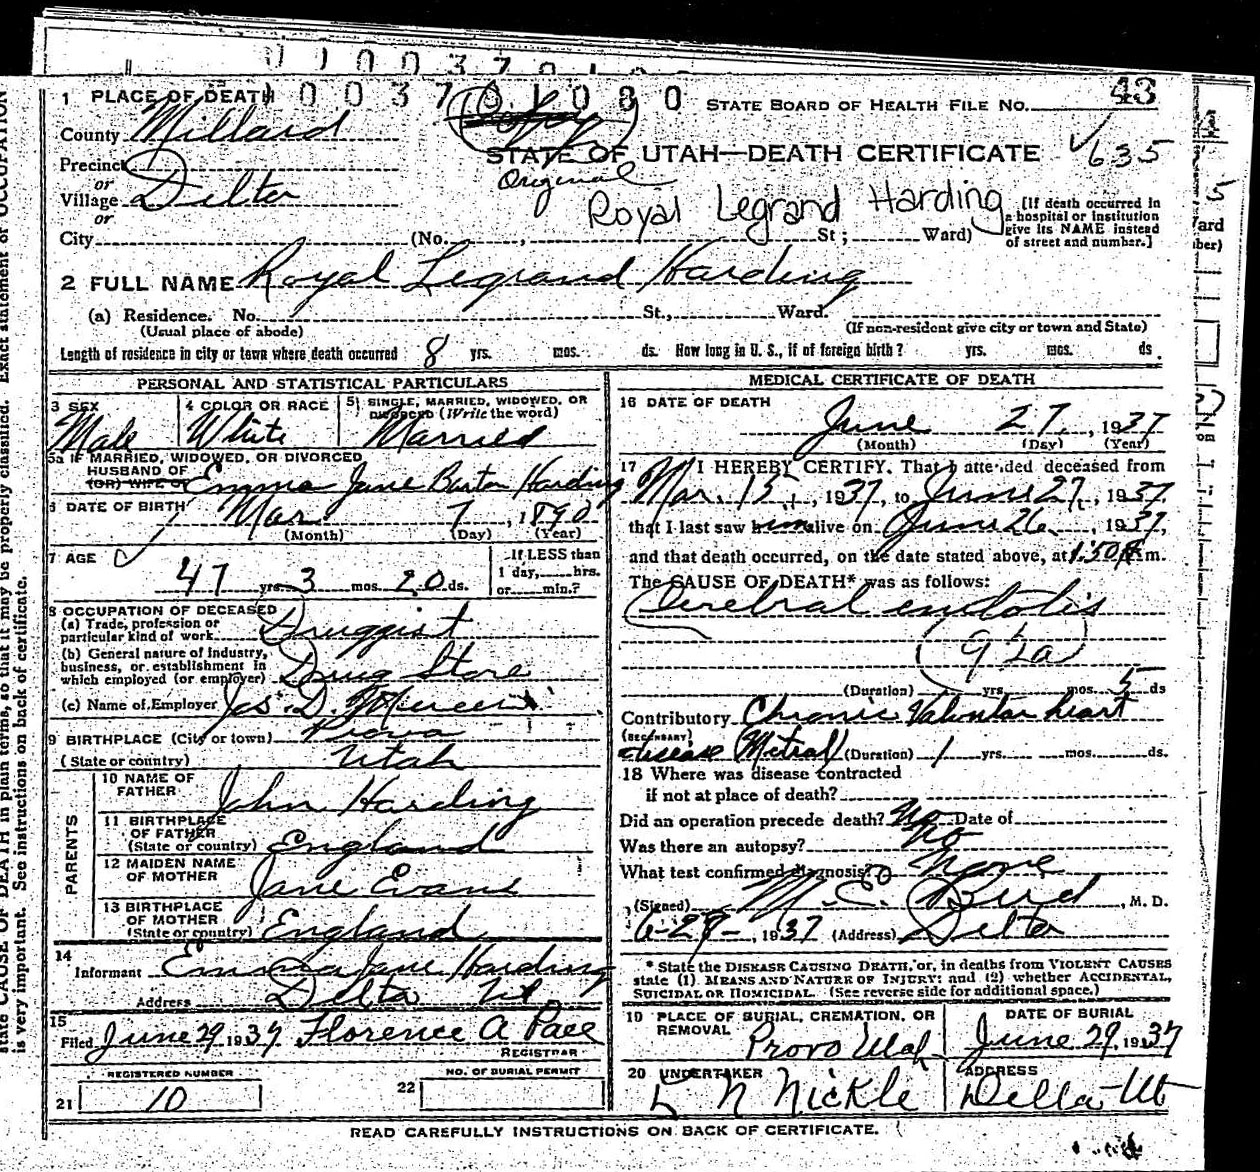 43
1 PLACE OF DEATH 0 0 3 7 0 1 0 8 0 STATE BOARD OF HEALTH FILE No.
County Millard
STATE OF UTAH—DEATH CERTIFICATE 635
Precinct
or Original
Village Delta Royal Legrand Harding
or
City (No. , St; Ward)
[If death occurred in
a hospital or institution
give its NAME instead
of street and number.]
2 FULL NAME Royal Legrand Harding
(a) Residence. No. St., Ward.
(Usual place of abode) (If non-resident give city or town and State)
Length of residence in city or town where death occurred 8 yrs. mos. ds. How long in U. S., if of foreign birth? yrs. mos. ds.
PERSONAL AND STATISTICAL PARTICULARS
3 SEX Male
4 COLOR OR RACE White
5 SINGLE, MARRIED, WIDOWED, OR
DIVORCED (Write the word)
Married
5a IF MARRIED, WIDOWED, OR DIVORCED
HUSBAND OF
(OR) WIFE OF Emma Jane Barton Harding
6 DATE OF BIRTH Mar 7, 1890
(Month) (Day) (Year)
7 AGE 47 yrs. 3 mos. 20 ds.
If LESS than
1 day, hrs.
or min.?
8 OCCUPATION OF DECEASED
(a) Trade, profession or
particular kind of work Druggist
(b) General nature of industry,
business, or establishment in
which employed (or employer) Drug Store
(c) Name of Employer Jas. D.
9 BIRTHPLACE (City or town) Provo
(State or country) Utah
PARENTS
10 NAME OF
FATHER John Harding
11 BIRTHPLACE
OF FATHER
(State or country) England
12 MAIDEN NAME
OF MOTHER Jane Evans
13 BIRTHPLACE
OF MOTHER
(State or country) England
14
Informant Emma Jane Harding
Address Delta Ut
15
Filed June 29 1937 Florence A
REGISTRAR
REGISTERED NUMBER
21 10
NO. OF BURIAL PERMIT
22
MEDICAL CERTIFICATE OF DEATH
16 DATE OF DEATH
June 27, 1937
(Month) (Day) (Year)
17 I HEREBY CERTIFY. That I attended deceased from
Mar. 15, 1937, to June 27, 1937
that I last saw him alive on June 26, 1937,
and that death occurred, on the date stated above, at 1:50 m.
The CAUSE OF DEATH* was as follows:
Cerebral
92a
(Duration) yrs. mos. 5 ds
Contributory Chronic Valvular heart
(SECONDARY)
disease (Metral) (Duration) 1 yrs. mos. ds.
18 Where was disease contracted
if not at place of death?
Did an operation precede death? No Date of
Was there an autopsy? No
What test confirmed diagnosis? None
(Signed) M. E. Bird, M. D.
6-29-, 1937 (Address) Delta
* State the DISEASE CAUSING DEATH, or, in deaths from VIOLENT CAUSES
state (1) MEANS AND NATURE OF INJURY; and (2) whether ACCIDENTAL,
SUICIDAL OR HOMICIDAL. (See reverse side for additional space.)
19 PLACE OF BURIAL, CREMATION, OR
REMOVAL
Provo Utah
DATE OF BURIAL
June 29, 1937
20 UNDERTAKER
N Nickle
ADDRESS
Delta Ut
READ CAREFULLY INSTRUCTIONS ON BACK OF CERTIFICATE.
state CAUSE OF DEATH in plain terms, so that it may be properly classified. Exact statement of OCCUPATION
is very important. See instructions on back of certificate.